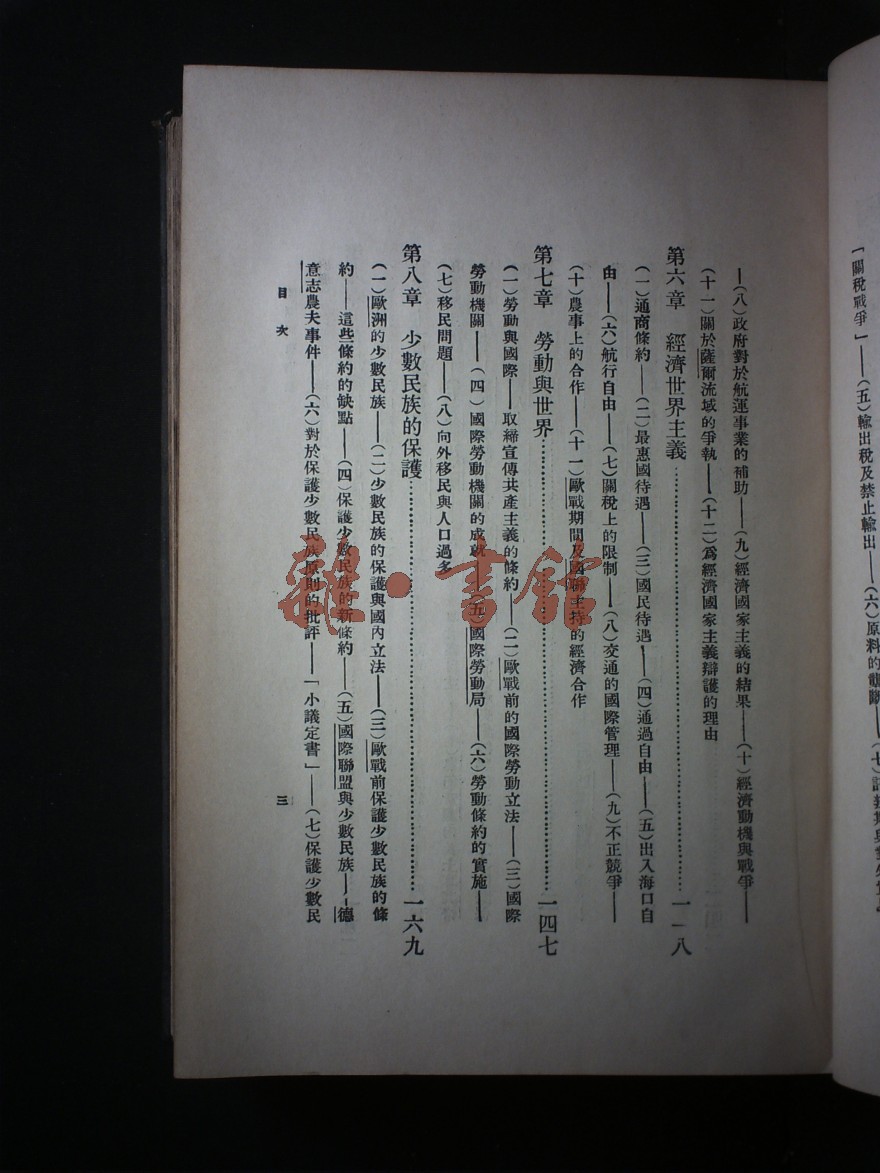 「關稅戰爭」——(五)輸出稅及禁止輸出——(六)原料的壟斷——(七)
——(八)政府對於航運事業的補助——(九)經濟國家主義的結果——(十)經濟動機與戰爭——
(十一)關於薩爾流域的爭執——(十二)爲經濟國家主義辯護的理由
第六章 經濟世界主義……一一八
(一)通商條約——(二)最惠國待遇——(三)國民待遇——(四)通過自由——(五)出入海口自
由——(六)航行自由——(七)關稅上的限制——(八)交通的國際管理——(九)不正競爭——
(十)農事上的合作——(十一)歐戰期間及國聯主持的經濟合作
第七章 勞動與世界……一四七
(一)勞動與國際——取締宣傳共產主義的條約——(二)歐戰前的國際勞動立法——(三)國際
勞動機關——(四)國際勞動機關的成就——(五)國際勞動局——(六)勞動條約的實施——
(七)移民問題——(八)向外移民與人口過多
第八章 少數民族的保護……一六九
(一)歐洲的少數民族——(二)少數民族的保護與國內立法——(三)歐戰前保護少數民族的條
約——這些條約的缺點——(四)保護少數民族的新條約——(五)國際聯盟與少數民族——德
意志農夫事件——(六)對於保護少數民族原則的批評——「小議定書」——(七)保護少數民
目次 三
雜·書館